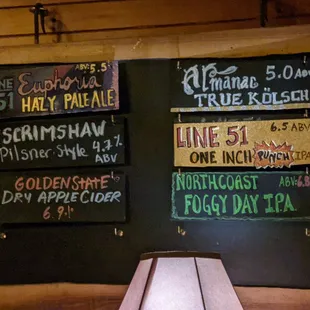 LINE Euphoria ABV: 5.5
51 HAZY PALE ALE
SCRIMSHAW
Pilsner Style 4.7% ABV
GOLDENSTATE
DRY APPLE CIDER
6.9%
Almanac 5.0 ABV
TRUE KÖLSCH
LINE 51 6.5 ABV
ONE INCH PUNCH IPA
NORTHCOAST ABV
FOGGY DAY I.P.A.